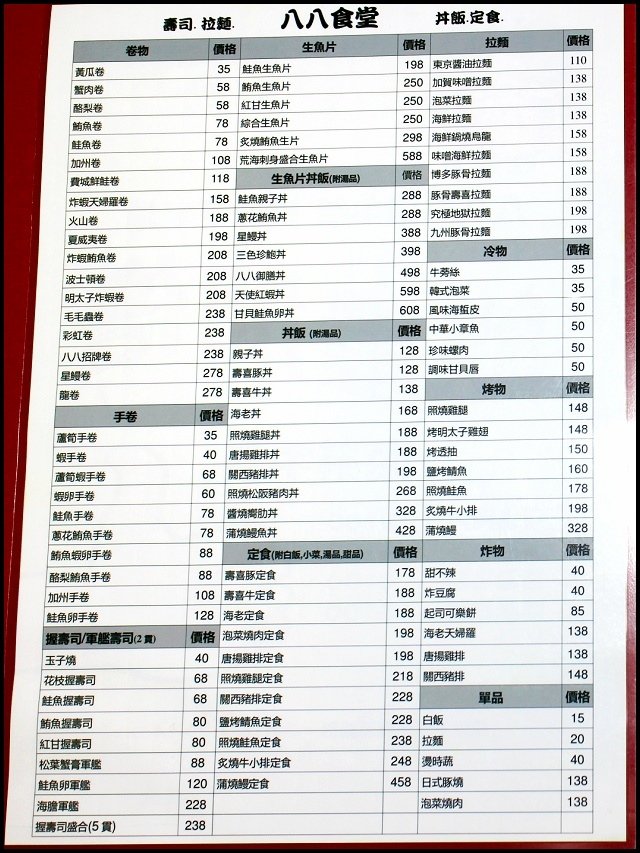 壽司.拉麵. 八八食堂 丼飯.定食.
卷物 價格
黃瓜卷 35
蟹肉卷 58
酪梨卷 58
鮪魚卷 78
鮭魚卷 78
加州卷 108
費城鮮鮭卷 118
炸蝦天婦羅卷 158
火山卷 188
夏威夷卷 198
炸蝦鮪魚卷 208
波士頓卷 208
明太子炸蝦卷 208
毛毛蟲卷 238
彩虹卷 238
八八招牌卷 238
星鰻卷 278
龍卷 278
手卷 價格
蘆筍手卷 35
蝦手卷 40
蘆筍蝦手卷 68
蝦卵手卷 60
鮭魚手卷 78
蔥花鮪魚手卷 78
鮪魚蝦卵手卷 88
酪梨鮪魚手卷 88
加州手卷 108
鮭魚卵手卷 128
握壽司/軍艦壽司(2貫) 價格
玉子燒 40
花枝握壽司 68
鮭魚握壽司 68
鮪魚握壽司 80
紅甘握壽司 80
松葉蟹膏軍艦 88
鮭魚卵軍艦 120
海膽軍艦 228
握壽司盛合(5貫) 238
生魚片 價格
鮭魚生魚片 198
鮪魚生魚片 250
紅甘生魚片 250
綜合生魚片 250
炙燒鮪魚生片 298
荒海刺身盛合生魚片 588
生魚片丼飯(附湯品) 價格
鮭魚親子丼 288
蔥花鮪魚丼 288
星鰻丼 388
三色珍鮑丼 398
八八御膳丼 498
天使紅蝦丼 598
甘貝鮭魚卵丼 608
丼飯 (附湯品) 價格
親子丼 128
壽喜豚丼 128
壽喜牛丼 138
海老丼 168
照燒雞腿丼 188
唐揚雞排丼 188
關西豬排丼 198
照燒松阪豬肉丼 268
醬燒嚮肋丼 328
蒲燒鰻魚丼 428
定食(附白飯,小菜,湯品,甜品) 價格
壽喜豚定食 178
壽喜牛定食 188
海老定食 188
泡菜燒肉定食 198
唐揚雞排定食 198
照燒雞腿定食 218
關西豬排定食 228
鹽烤鯖魚定食 228
照燒鮭魚定食 238
炙燒牛小排定食 248
蒲燒鰻定食 458
拉麵 價格
東京醬油拉麵 110
加賀味噌拉麵 138
泡菜拉麵 138
海鮮拉麵 138
海鮮鍋燒烏龍 158
味噌海鮮拉麵 158
博多豚骨拉麵 188
豚骨壽喜拉麵 188
究極地獄拉麵 198
九州豚骨拉麵 198
冷物 價格
牛蒡絲 35
韓式泡菜 35
風味海蜇皮 50
中華小章魚 50
珍味螺肉 50
調味甘貝唇 50
烤物 價格
照燒雞腿 148
烤明太子雞翅 148
烤透抽 150
鹽烤鯖魚 160
照燒鮭魚 178
炙燒牛小排 198
蒲燒鰻 328
炸物 價格
甜不辣 40
炸豆腐 40
起司可樂餅 85
海老天婦羅 138
唐揚雞排 138
關西豬排 148
單品 價格
白飯 15
拉麵 20
燙時蔬 40
日式豚燒 138
泡菜燒肉 138